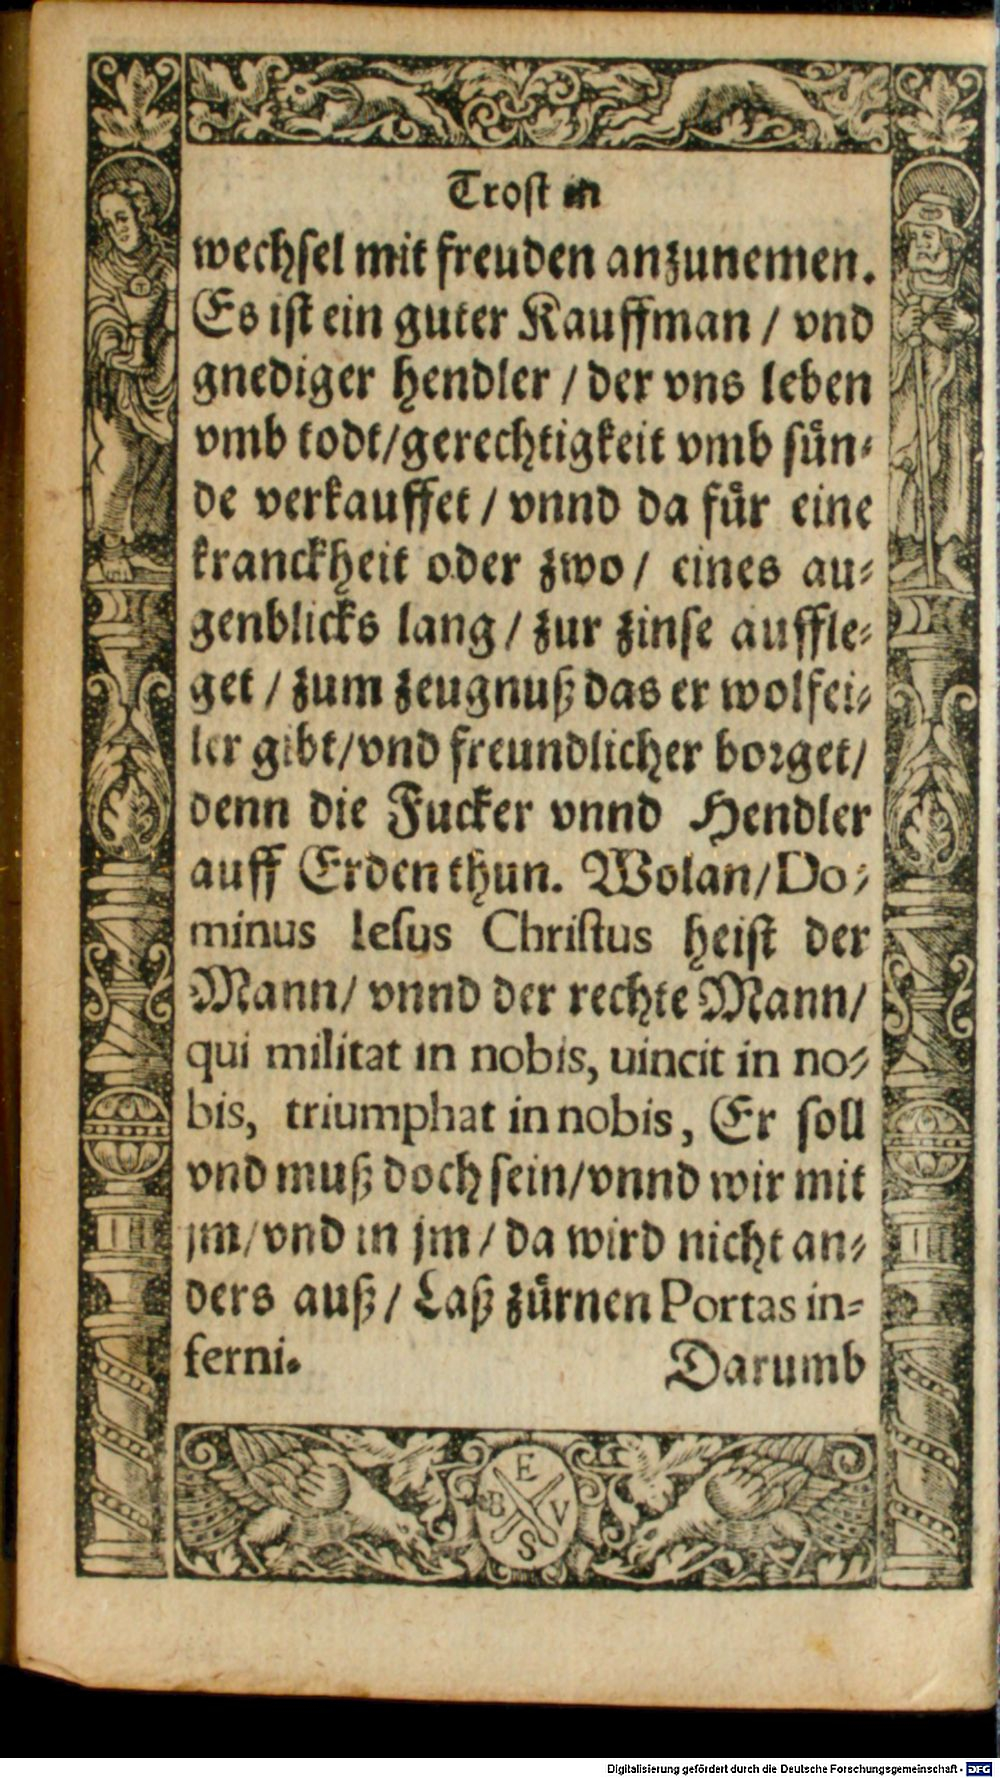 Trost in
wechsel mit freuden anzunemen.
Es ist ein guter Kauffman / vnd
gnediger hendler / der vns leben
vmb todt/gerechtigkeit vmb sün⸗
de verkauffet / vnnd da für eine
kranckheit oder zwo / eines au⸗
genblicks lang / zur zinse auffle⸗
get / zum zeugnuß das er wolfei⸗
ler gibt/vnd freundlicher borget/
denn die Fucker vnnd Hendler
auff Erden thun. Wolan/Do⸗
minus Iesus Christus heist der
Mann/ vnnd der rechte Mann/
qui militat in nobis, uincit in no⸗
bis, triumphat in nobis, Er soll
vnd muß doch sein/vnnd wir mit
jm/vnd in jm / da wird nicht an⸗
ders auß / Laß zürnen Portas in⸗
ferni. Darumb
E
B V
S
Digitalisierung gefördert durch die Deutsche Forschungsgemeinschaft - DFG